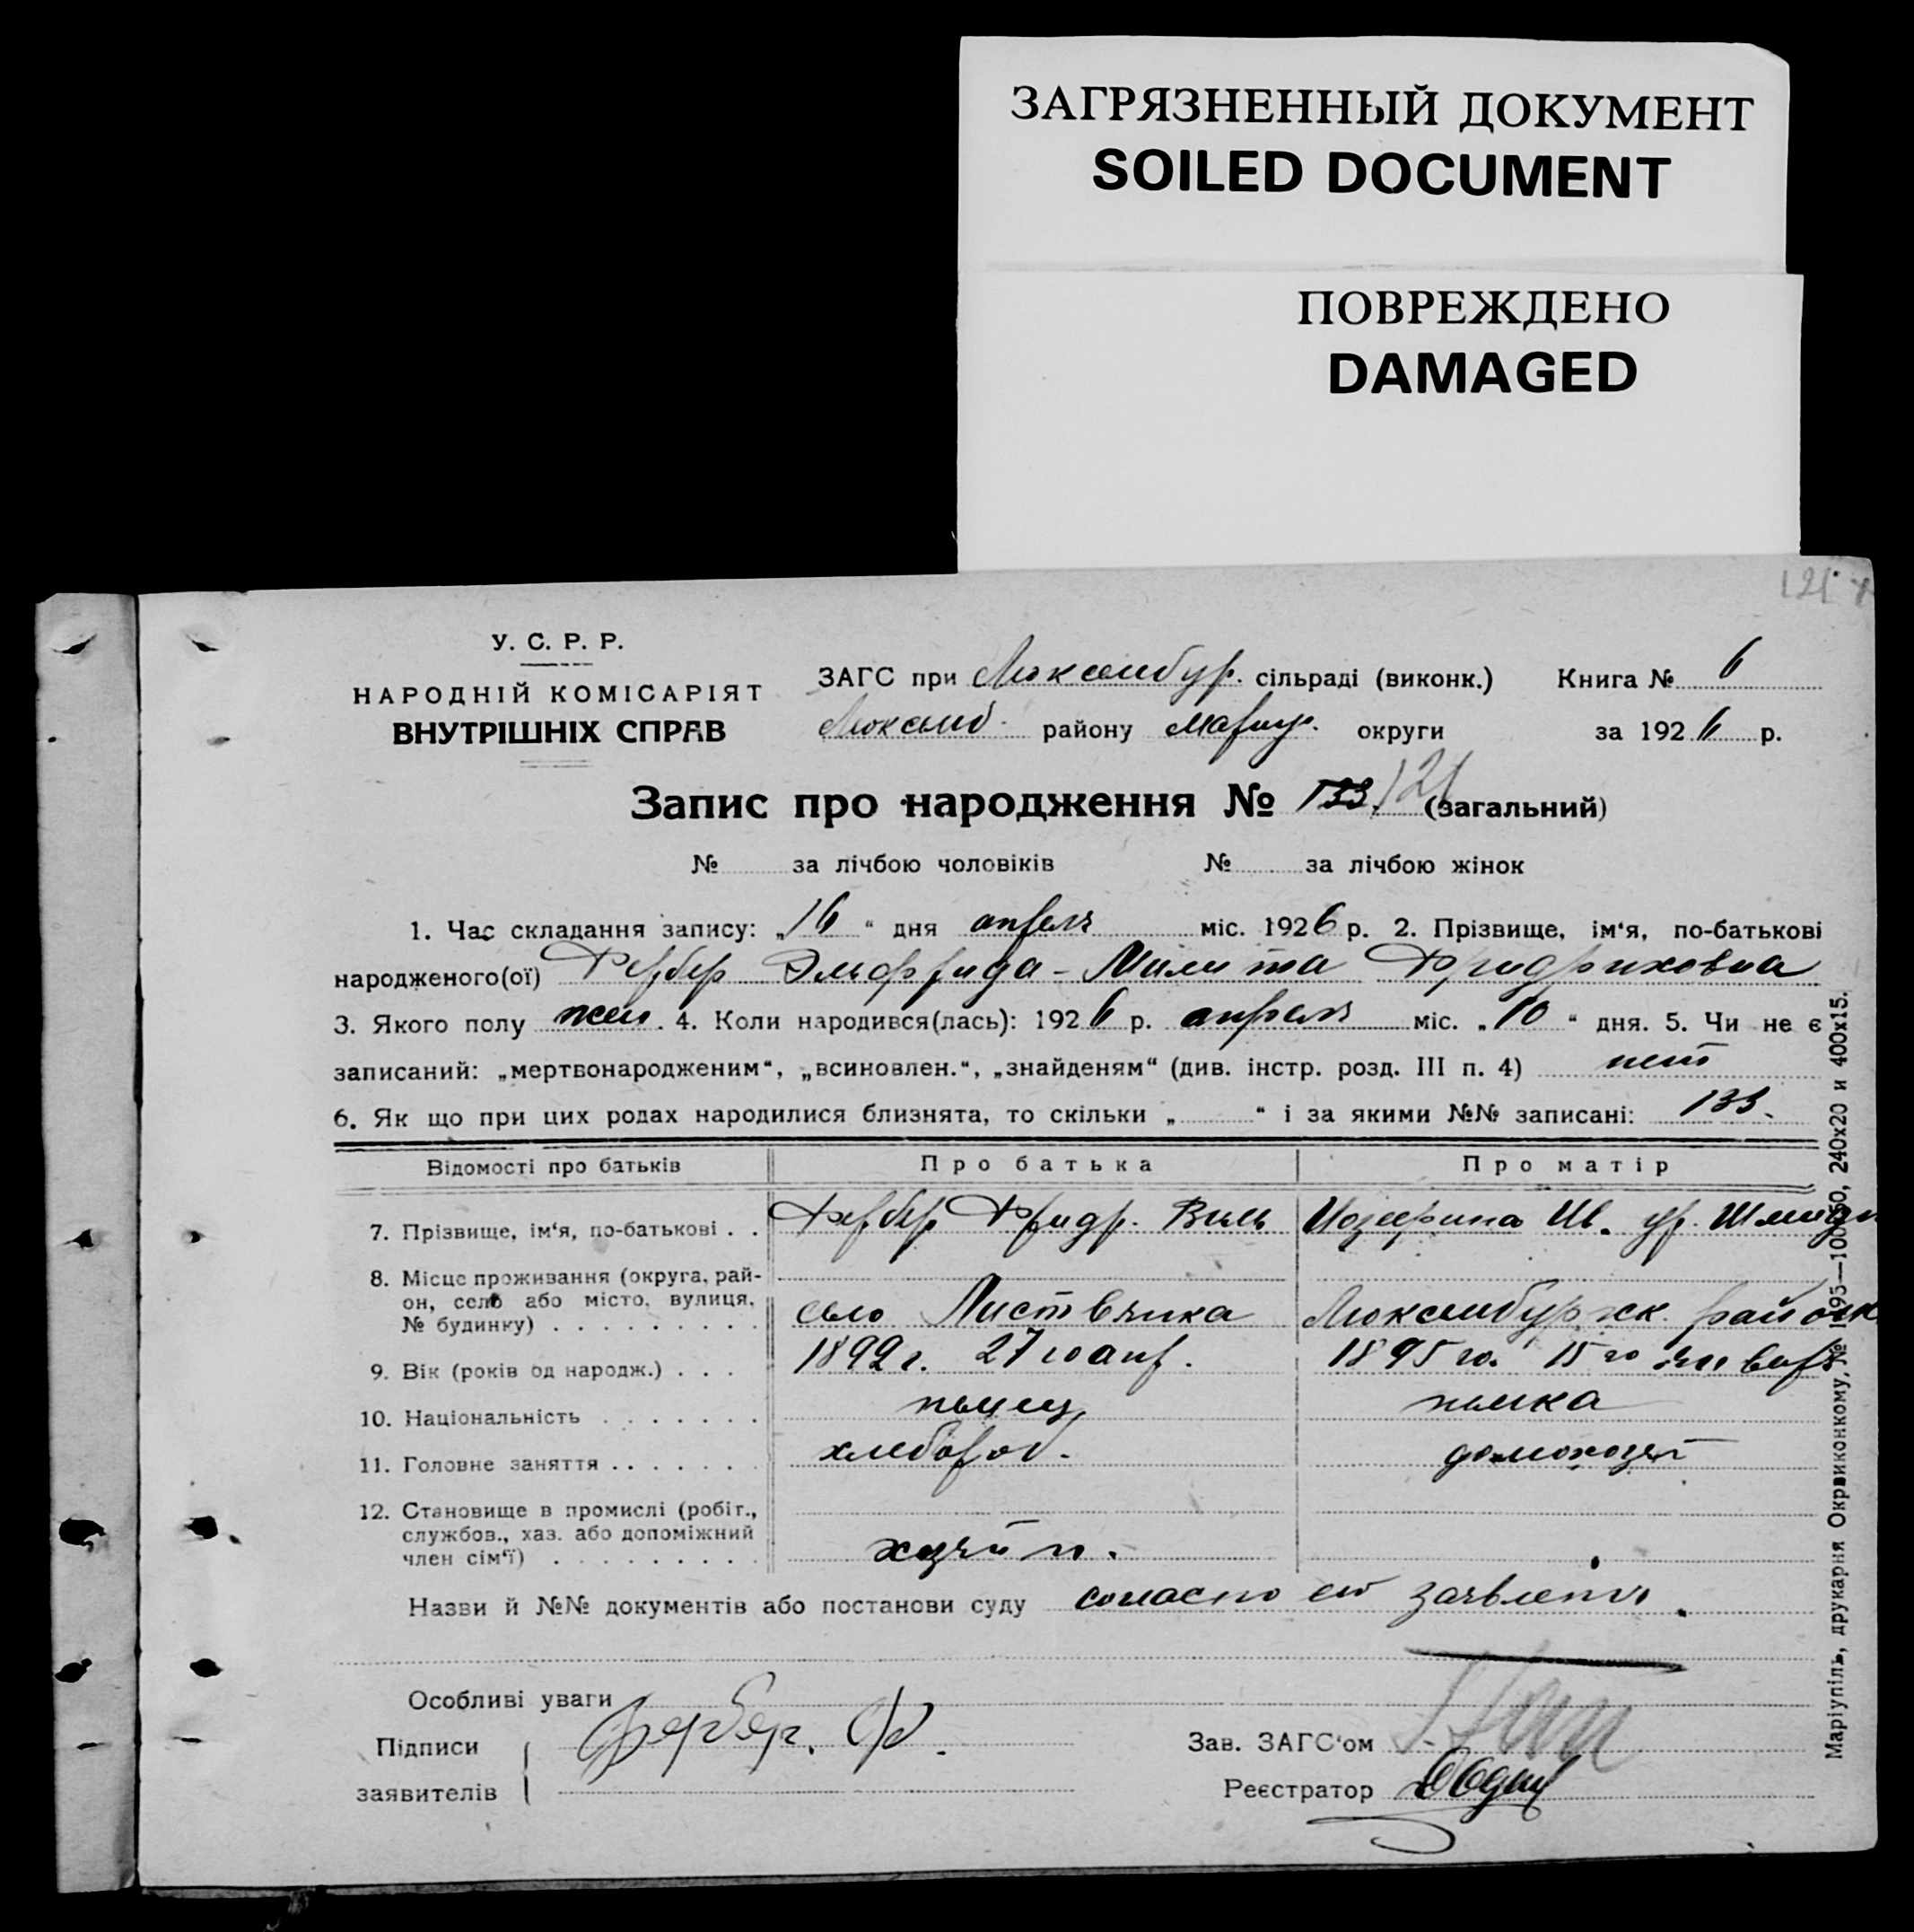 ЗАГРЯЗНЕННЫЙ ДОКУМЕНТ
SOILED DOCUMENT
ПОВРЕЖДЕНО
DAMAGED
121
У. С. Р. Р.
НАРОДНІЙ КОМІСАРІЯТ
ВНУТРІШНІХ СПРАВ
ЗАГС при Люксембур. сільраді (виконк.) Книга № 6
Люксемб. району Мариуп. округи за 1926 р.
Запис про народження № 133 121 (загальний)
№ за лічбою чоловіків № за лічбою жінок
1. Час складання запису: „16“ дня апреля міс. 1926 р. 2. Прізвище, ім‘я, по-батькові
народженого(ої) Фербер Эльфрида-Милита Фридриховна
3. Якого полу жен. 4. Коли народився(лась): 1926 р. апреля міс. „10“ дня. 5. Чи не є
записаний: „мертвонародженим“, „всиновлен.“, „знайденям“ (див. інстр. розд. III п. 4) нет
6. Як що при цих родах народилися близнята, то скільки „ “ і за якими №№ записані: 133.
Відомості про батьків Про батька Про матір
7. Прізвище, ім‘я, по-батькові . . Фербер Фридр. Виль Иозефина Ив. ур. Шмидт
8. Місце проживання (округа, рай-
он, село або місто, вулиця,
№ будинку) . . . . . . . . . село Листвянка Люксембургск. район
9. Вік (років од народж.) . . . 1892 г. 27го апр. 1895 го. 15го января
10. Національність . . . . . . . немец немка
11. Головне заняття . . . . . . . хлебороб. домохозяй
12. Становище в промислі (робіт.,
службов., хаз. або допоміжний
член сім‘ї) . . . . . . . . . хозяин.
Назви й №№ документів або постанови суду согласно его заявления.
Особливі уваги
Підписи Фербер. Ф. Зав. ЗАГС‘ом
заявителів Реєстратор
Маріупіль, друкарня Окрвиконкому, № 195—10050, 240x20 и 400x15.